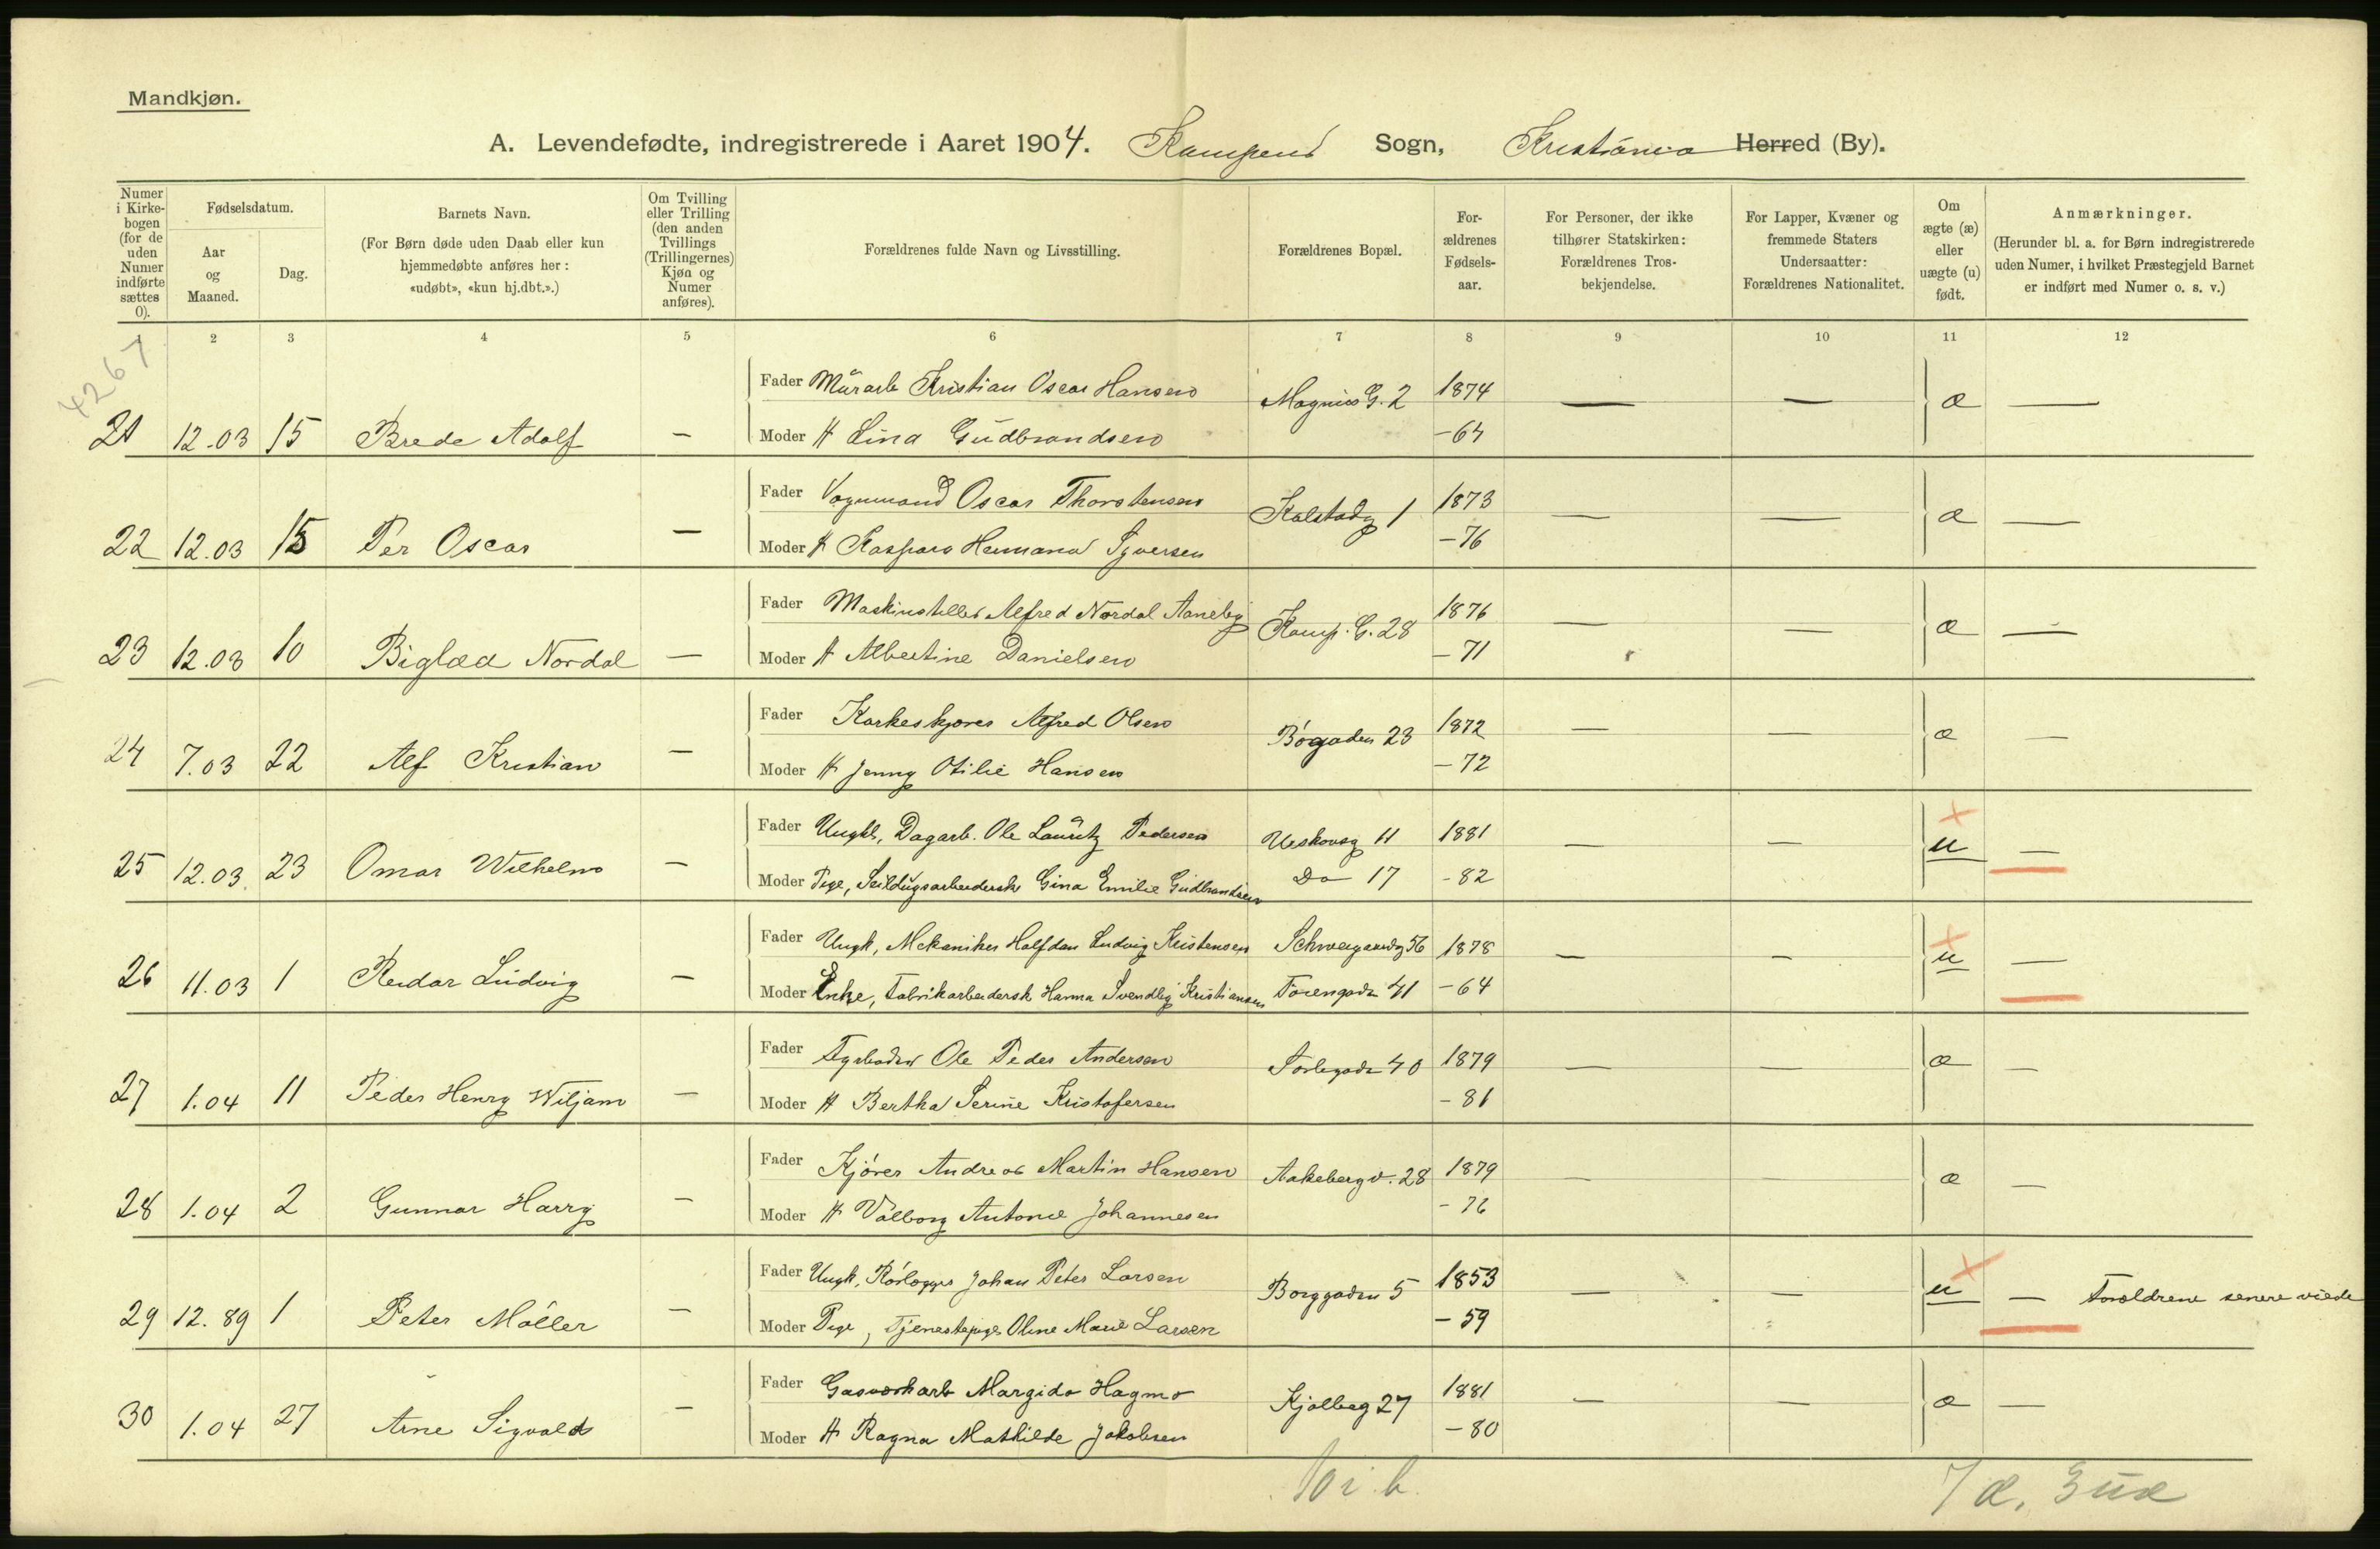 Mandkjøn.
A. Levendefødte, indregistrerede i Aaret 1904. Kampens Sogn, Kristiania Herred (By).
Numer i Kirkebogen (for de uden Numer indførte sættes 0).
Fødselsdatum.
Aar og Maaned.
Dag.
Barnets Navn.
(For Børn døde uden Daab eller kun hjemmedøbte anføres her: «udøbt», «kun hj.dbt.».)
Om Tvilling eller Trilling (den anden Tvillings (Trillingernes) Kjøn og Numer anføres).
Forældrenes fulde Navn og Livsstilling.
Forældrenes Bopæl.
Forældrenes Fødselsaar.
For Personer, der ikke tilhører Statskirken: Forældrenes Trosbekjendelse.
For Lapper, Kvæner og fremmede Staters Undersaatter: Forældrenes Nationalitet.
Om ægte (æ) eller uægte (u) født.
Anmærkninger.
(Herunder bl. a. for Børn indregistrerede uden Numer, i hvilket Præstegjeld Barnet er indført med Numer o. s. v.)
1 2 3 4 5 6 7 8 9 10 11 12
4267
Fader Murarb Kristian Oscar Hansen Magnus G. 2 1874 — — æ —
21 12.03 15 Brede Adolf — Moder H Lina Gudbrandsen -64
Fader Vognmand Oscar Thorstensen Kalstadg 1 1873 — — æ —
22 12.03 15 Per Oscar — Moder H Kaspara Hermana Syversen -76
Fader Maskinstiller Alfred Nordal Aaneby Kamp. G. 28 1876 — — æ —
23 12.03 10 Biglad Nordal — Moder H Albertine Danielsen -71
Fader Korkeskjærer Alfred Olsen Bøgaden 23 1872 — — æ —
24 7.03 22 Alf Kristian — Moder H Jenny Otilie Hansen -72
Fader Ungkl, Dagarb. Ole Lauritz Pedersen Ueskovsg 11 1881 — — u —
25 12.03 23 Omar Wilhelm — Moder Pige, Seildugsarbeiderske Gina Emilie Gudbrandsen Do 17 -82
Fader Ungk, Mekaniker Halfdan Ludvig Kristensen Schweigaardsg 56 1878 — — u —
26 11.03 1 Reidar Ludvig — Moder Enke, Fabrikarbeidersk Hanna Svendby Kristiansen Tøiengada 41 -64
Fader Fyrbøder Ole Peder Andersen Sørligada 40 1879 — — æ —
27 1.04 11 Peder Henry Wiljam — Moder H Bertha Serine Kristofersen -81
Fader Kjører Andreas Martin Hansen Aakebergv. 28 1879 — — æ —
28 1.04 2 Gunnar Harry — Moder H Valborg Antonie Johannesen -76
Fader Ungk, Rørlægger Johan Peter Larsen Borggaden 5 1853 — — u — Forældrene senere viede
29 12.89 1 Peter Møller — Moder Pige, Tjenestepige Oline Marie Larsen -59
Fader Gasværkarb Margido Hagmo Kjølberg 27 1881 — — æ —
30 1.04 27 Arne Sigvald — Moder H Ragna Mathilde Jakobsen -80
10 i b. 7 æ, 3 uæ